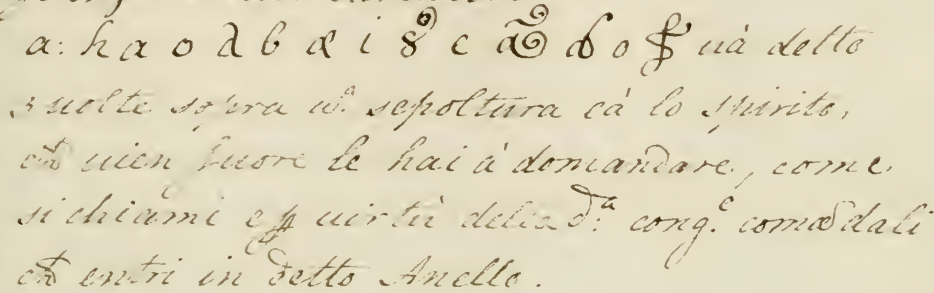 a: h a o d b æ i 8 c a d o uà detto
3 uolte sopra u.ᵃ sepoltura cà lo spirito,
uien fuore le hai à domandare, come
si chiami e uirtù della d.ᵃ cong.ᵉ comādali
entri in detto Anello.